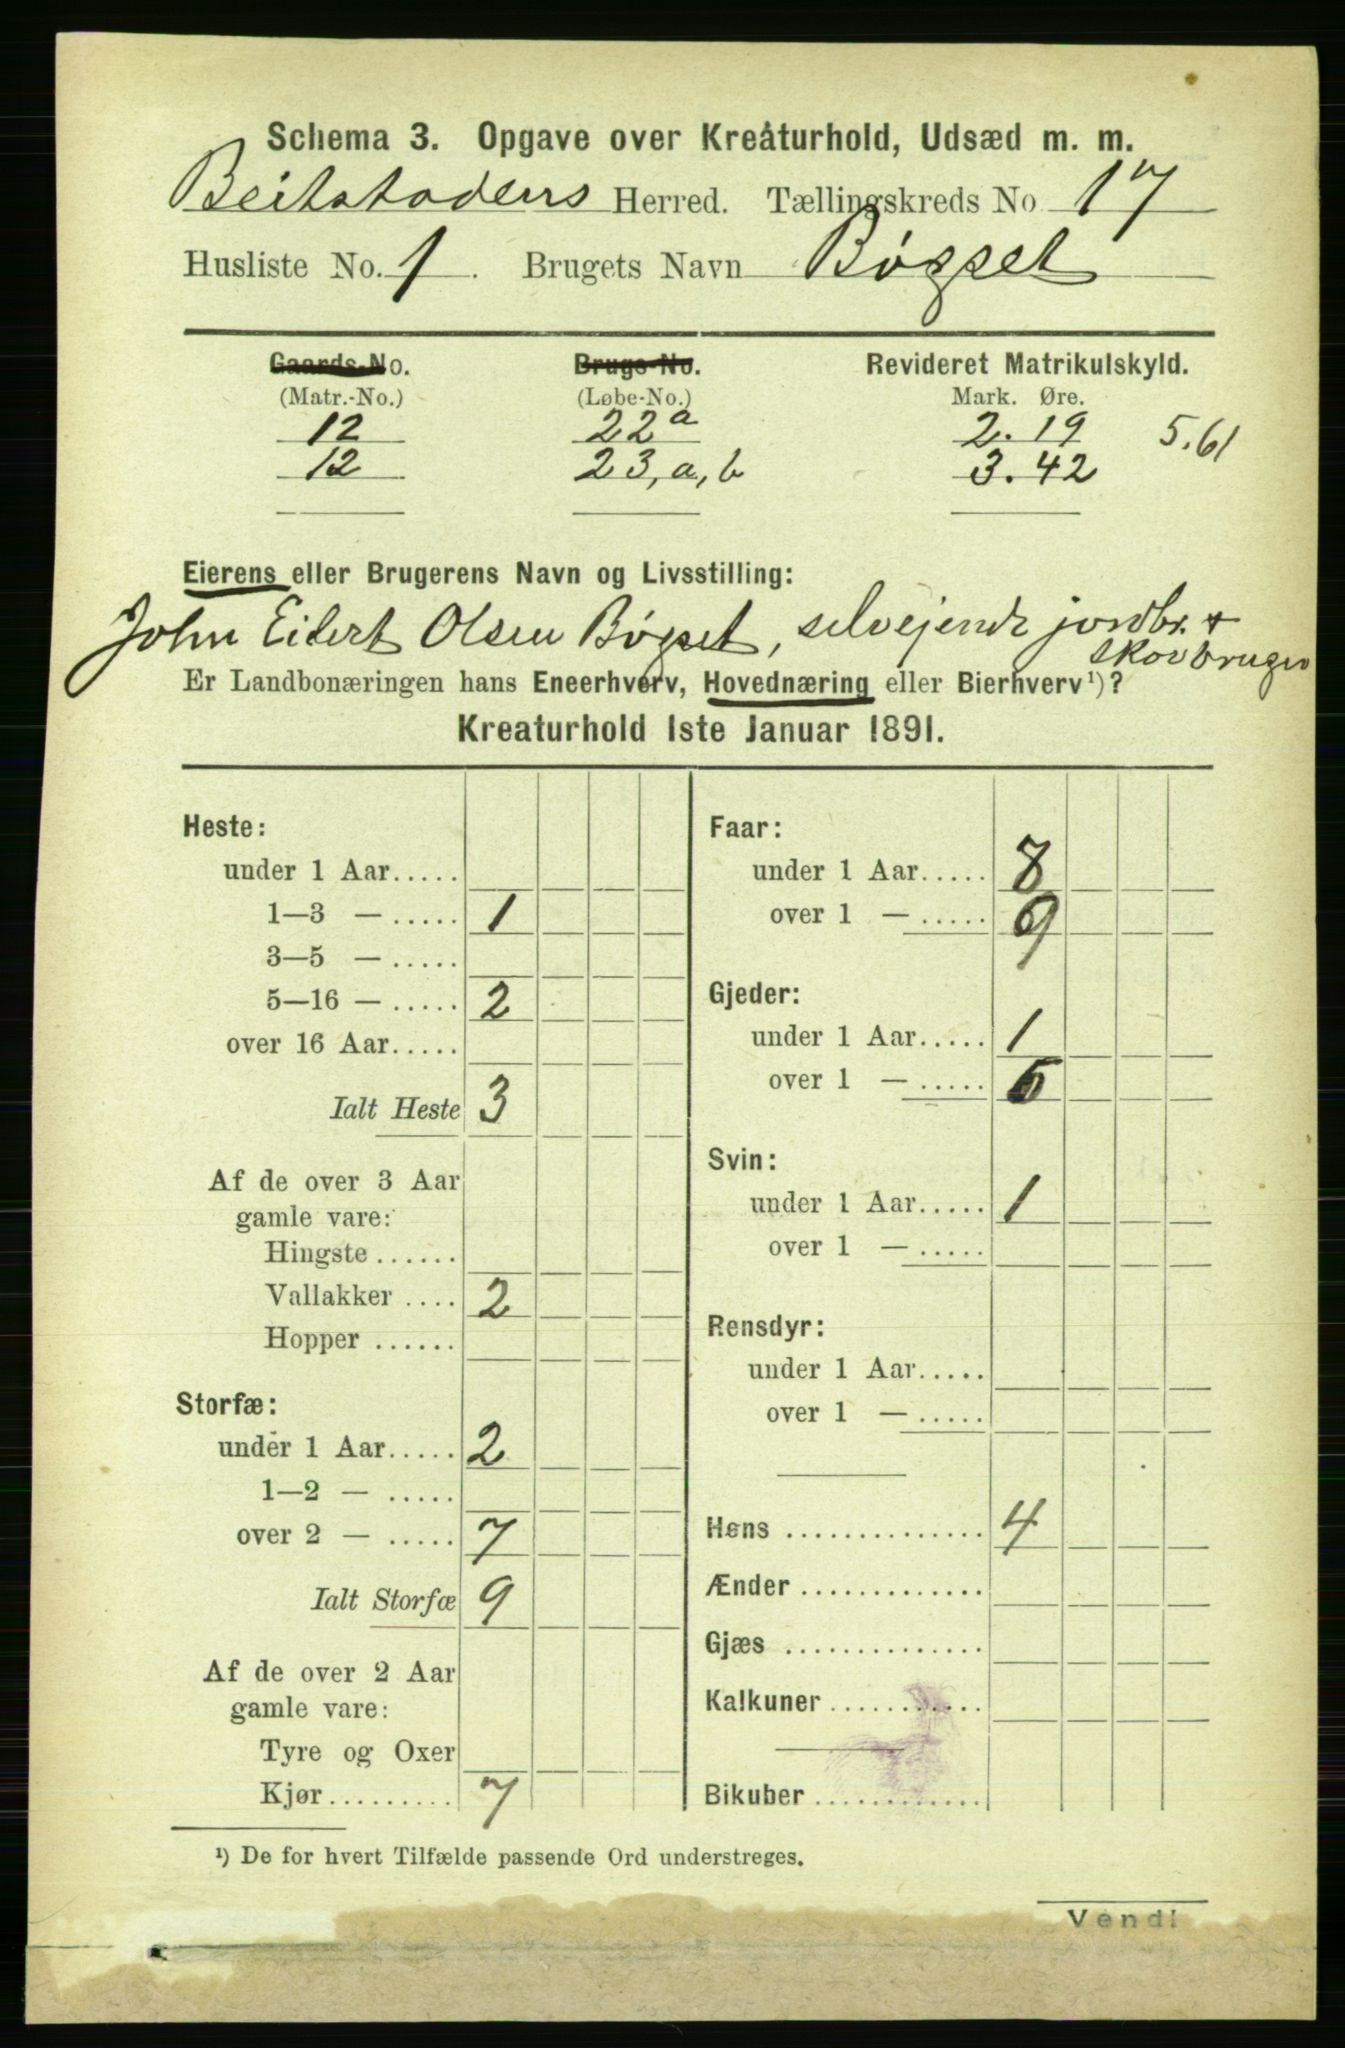 Schema 3. Opgave over Kreaturhold, Udsæd m. m.
Beitstadens Herred. Tællingskreds No 17
Husliste No. 1. Brugets Navn Bøgset
Gaards-No. Brugs-No. Revideret Matrikulskyld.
(Matr.-No.) (Løbe-No.) Mark. Øre.
12 22a 2.19 5.61
12 23, a, b 3.42
Eierens eller Brugerens Navn og Livsstilling:
John Eilert Olsen Bøgset, selvejende jordbr. +
skovbruger
Er Landbonæringen hans Eneerhverv, Hovednæring eller Bierhverv ¹)?
Kreaturhold 1ste Januar 1891.
Heste:
under 1 Aar.....
1—3 — ..... 1
3—5 — .....
5—16 — ..... 2
over 16 Aar.....
Ialt Heste 3
Af de over 3 Aar
gamle vare:
Hingste ......
Vallakker .... 2
Hopper ......
Storfæ:
under 1 Aar..... 2
1—2 — .....
over 2 — ..... 7
Ialt Storfæ 9
Af de over 2 Aar
gamle vare:
Tyre og Oxer
Kjør......... 7
Faar:
under 1 Aar..... 8
over 1 — ..... 9
Gjeder:
under 1 Aar..... 1
over 1 — ..... 5
Svin:
under 1 Aar..... 1
over 1 — .....
Rensdyr:
under 1 Aar.....
over 1 — .....
Høns .............. 4
Ænder .............
Gjæs ..............
Kalkuner ...........
Bikuber ............
¹) De for hvert Tilfælde passende Ord understreges.
Vend!